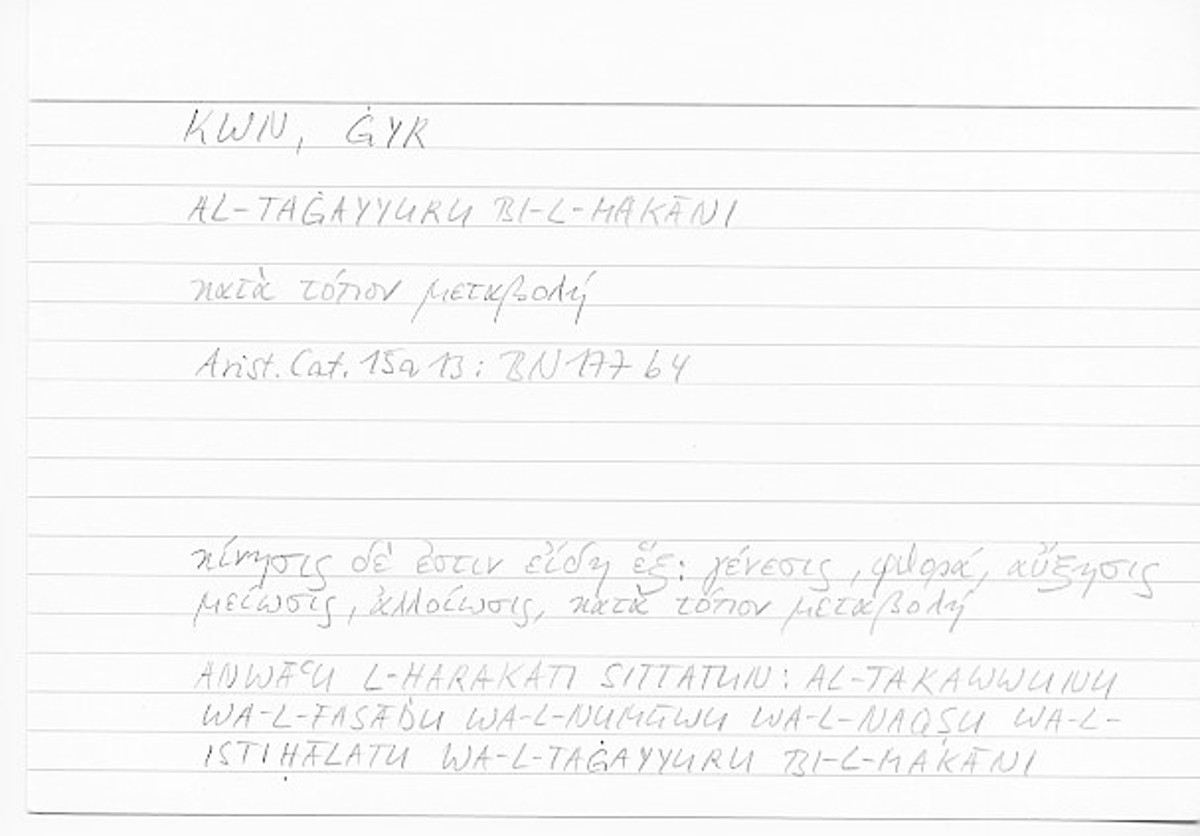 KWN, ĠYR
AL-TAĠAYYURU BI-L-MAKĀNI
κατὰ τόπον μεταβολή
Arist. Cat. 15a 13 : BN 177 b4
κίνησις δέ ἐστιν εἴδη ἕξ: γένεσις, φθορά, αὔξησις
μείωσις, ἀλλοίωσις, κατὰ τόπον μεταβολή
ANWĀʿU L-HARAKATI SITTATUN: AL-TAKAWWUNU
WA-L-FASĀDU WA-L-NUMŪWU WA-L-NAQṢU WA-L-
ISTIḤĀLATU WA-L-TAĠAYYURU BI-L-MAKĀNI